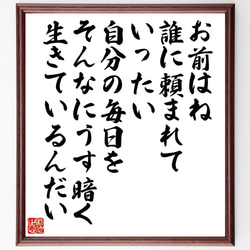 お前はね
誰に頼まれて
いったい
自分の毎日を
そんなにうす暗く
生きているんだい